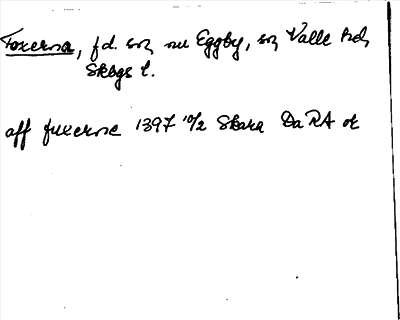 Foxerna, f.d. sn, nu Eggby, sn Valle hd,
Skbgs l.
aff fuxerne 1397 10/2 Skara DaRA or